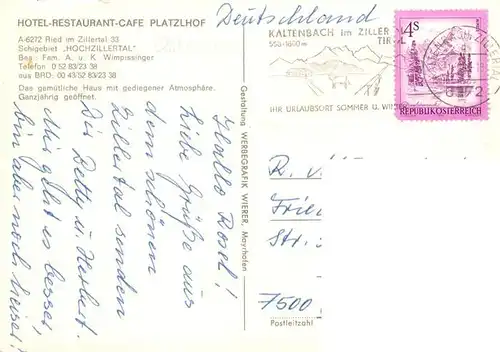 HOTEL-RESTAURANT-CAFE PLATZLHOF
A-6272 Ried im Zillertal 33
Schigebiet „HOCHZILLERTAL"
Bes. Fam. A. u. K. Wimpissinger
Telefon 0 52 83/23 38
aus BRD: 00 43/52 83/23 38
Das gemütliche Haus mit gediegener Atmosphäre.
Ganzjährig geöffnet.
Hallo Rosel!
Liebe Grüße aus
dem schönen
Zillertal senden
Dir Betty u. Herbert.
Mir geht es besser,
bin aber noch heiser!
Gestaltung WERBEGRAFIK WIERER, Mayrhofen
Deutschland
KALTENBACH im ZILLER
TIROL
558-1800 m
IHR URLAUBSORT SOMMER U. WIN
4S
REPUBLIK ÖSTERREICH
IM ZILLER
6272
R.
Frie
Str.
7500
Postleitzahl